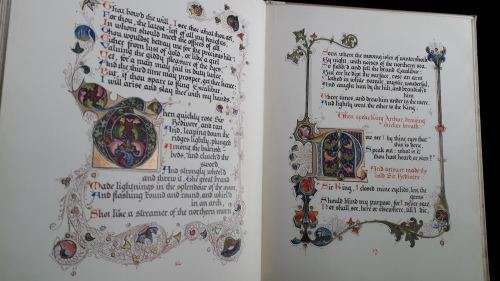 That bow'd the will. I see thee what thou art,
For thou, the latest-left of all my knights,
In whom should meet the offices of all,
Thou wouldst betray me for the precious hilt;
Either from lust of gold, or like a girl
Valuing the giddy pleasure of the eyes.
Yet, for a man may fail in duty twice,
And the third time may prosper, get thee hence:
But, if thou spare to fling Excalibur,
I will arise and slay thee with my hands."
Then quickly rose Sir
Bedivere, and ran,
And, leaping down the
ridges lightly, plunged
Among the bulrush-
beds, and clutch'd the
sword,
And strongly wheel'd
and threw it. The great brand
Made lightnings in the splendour of the moon,
And flashing round and round, and whirl'd
in an arch,
Shot like a streamer of the northern morn,
Seen where the moving isles of winter shock
By night, with noises of the northern sea.
So flash'd and fell the brand Excalibur:
But ere he dipt the surface, rose an arm
Clothed in white samite, mystic, wonderful,
And caught him by the hilt, and brandish'd
him
Three times, and drew him under in the mere.
And lightly went the other to the King.
Then spoke King Arthur, drawing
thicker breath:
"Now see I by thine eyes that
this is done.
Speak out: what is it
thou hast heard, or seen?"
And answer made the
bold Sir Bedivere:
"Sir King, I closed mine eyelids, lest the
gems
Should blind my purpose, for I never saw,
Nor shall see, here or elsewhere, till I die,